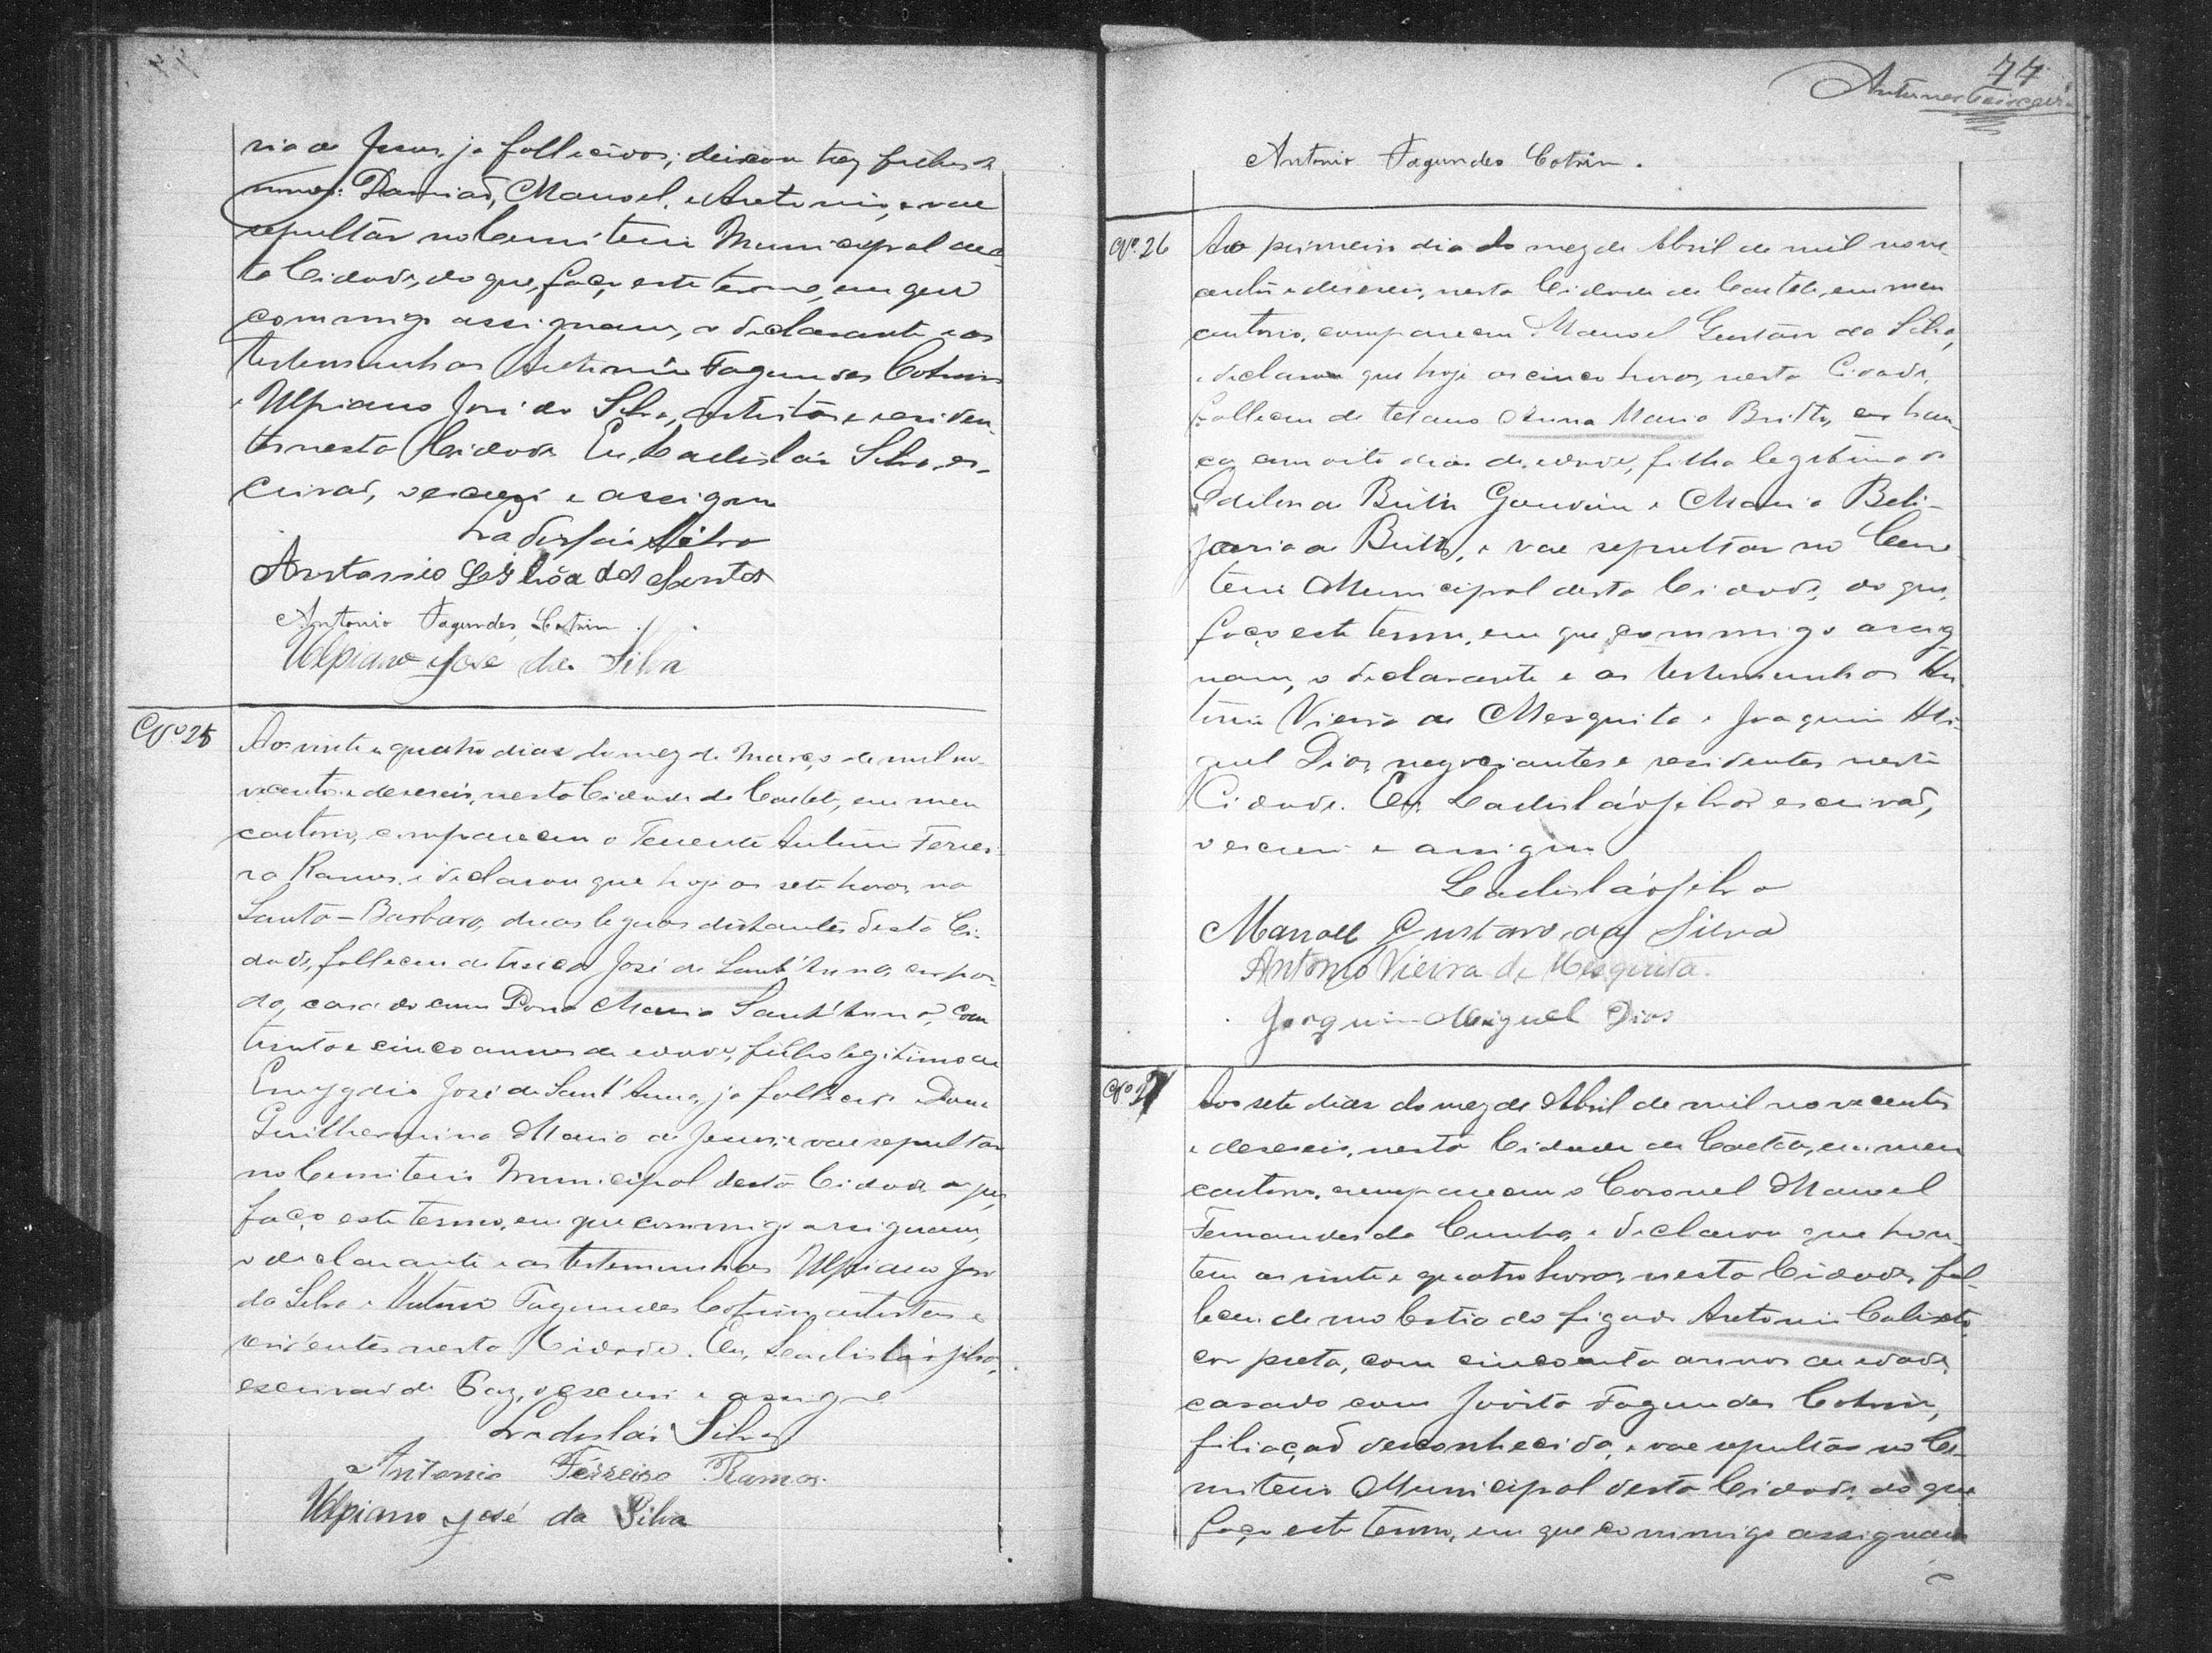 ria de Jesus, ja fallecidos; deixou trez filhos de
nomes: Damiaõ, Manoel, e Antonio, e vae
sepultar no Cemiterio Municipal des-
ta Cidade, do que, faço este termo, em que
commigo assignam, o declarante e as
testemunhas Antonio Fagundes Cotrim
e Ulpiano José da Silva, artistas e residen-
tes nesta Cidade. Eu, Ladisláo Silva, es-
crivaõ, o escrevi e assigno
Ladisláo Silva
Antonio Lisbôa dos Santos
Antonio Fagundes Cotrim.
Ulpiano José da Silva
Nº 25
Aos vinte e quatro dias do mez de Março de mil no-
vecentos e deseseis, nesta Cidade de Caeteté, em meu
cartorio, compareceu o Tenente Antonio Ferrei-
ra Ramos, e declarou que hoje as sete horas, na
Santa-Barbara, duas leguas distantes desta Ci-
dade, falleceu de tisica José de Sant'Anna, cor par-
da, casado com Dona Maria Sant'Anna, com
trinta e cinco annos de edade, filho legitimo de
Emygdio José de Sant'Anna, ja fallecido e Dona
Guilhermina Maria de Jesus, e vae sepultar
no Cemiterio Municipal desta Cidade, do que,
faço este termo, em que commigo assignam,
o declarante e as testemunhas Ulpiano José
da Silva e Antonio Fagundes Cotrim, artistas e
residentes nesta Cidade. Eu, Ladisláo Silva,
escrivaõ de Paz, o escrevi e assigno
Ladisláo Silva
Antonio Ferreira Ramos.
Ulpiano José da Silva
77
Antunes
Antonio Fagundes Cotrim.
Nº 26
Ao primeiro dia do mez de Abril de mil nove-
centos e deseseis, nesta Cidade de Caeteté, em meu
cartorio, compareceu Manoel Gustavo da Silva,
e declarou que hoje as cinco horas, nesta Cidade,
falleceu de tetano Anna Maria Britto, cor bran-
ca, com oito dias de edade, filha legitima de
Odilon de Britto Gondim e Maria Beli-
zaria de Britto, e vae sepultar no Cemi-
terio Municipal desta Cidade, do que,
faço este termo, em que commigo assig-
nam, o declarante e as testemunhas An-
tonio Vieira de Mesquita e Joaquim Mi-
guel Dias, negociantes e residentes nesta
Cidade. Eu, Ladisláo Silva, escrivaõ,
o escrevi e assigno
Ladisláo Silva
Manoel Gustavo da Silva
Antonio Vieira de Mesquita.
Joaquim Miguel Dias
Nº 27
Aos sete dias do mez de Abril de mil novecentos
e deseseis, nesta Cidade de Caeteté, em meu
cartorio, compareceu o Coronel Manoel
Fernandes da Cunha, e declarou que hon-
tem as vinte e quatro horas, nesta Cidade, fal-
leceu de molestia do figado Antonio Calixto,
cor preta, com cincoenta annos de edade,
casado com Jovita Fagundes Cotrim,
filiaçaõ desconhecida, e vae sepultar no Ce-
miterio Municipal desta Cidade, do que
faço este termo, em que commigo assignam